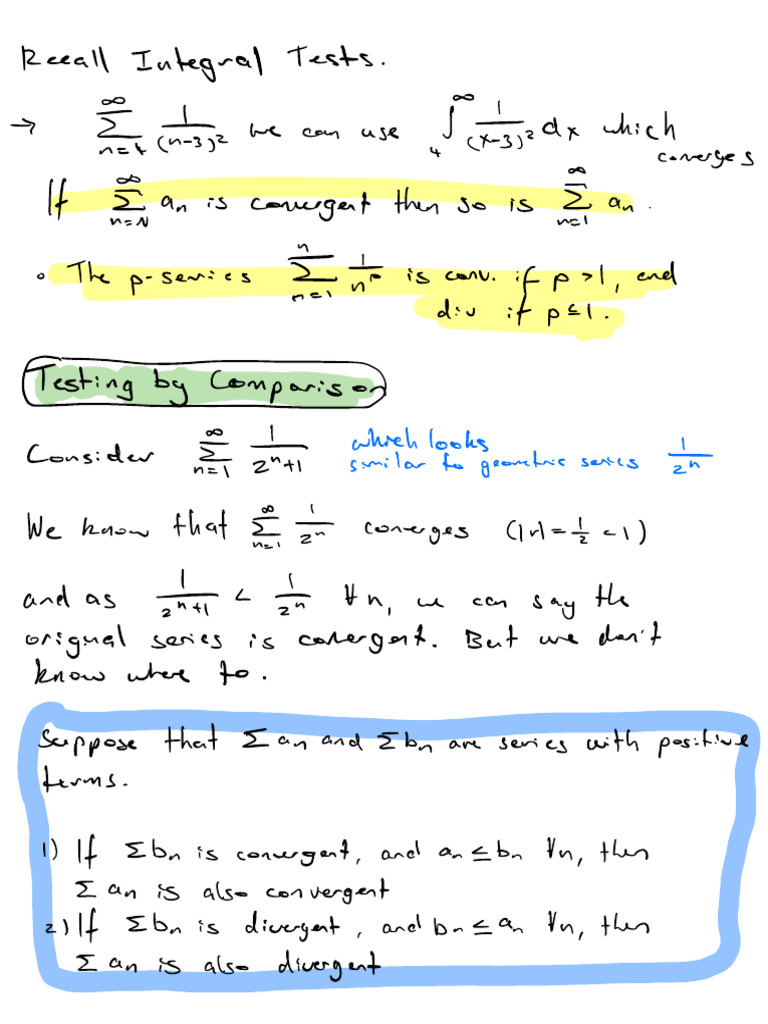 Recall Integral Tests.
→ ∑_{n=4}^{∞} 1/(n-3)² we can use ∫_4^∞ 1/(x-3)² dx which converges
If ∑_{n=N}^{∞} aₙ is convergent then so is ∑_{n=1}^{∞} aₙ.
• The p-series ∑_{n=1}^{n} 1/n^p is conv. if p >1, and
div if p ≤ 1.
Testing by Comparison
Consider ∑_{n=1}^{∞} 1/(2ⁿ+1) which looks similar to geometric series 1/2ⁿ
We know that ∑_{n=1}^{∞} 1/2ⁿ converges (|r| = 1/2 < 1)
and as 1/(2ⁿ+1) < 1/2ⁿ ∀n, we can say the
original series is convergent. But we don't
know where to.
Suppose that ∑aₙ and ∑bₙ are series with positive
terms.
1) If ∑bₙ is convergent, and aₙ ≤ bₙ ∀n, then
∑aₙ is also convergent
2) If ∑bₙ is divergent, and bₙ ≤ aₙ ∀n, then
∑aₙ is also divergent